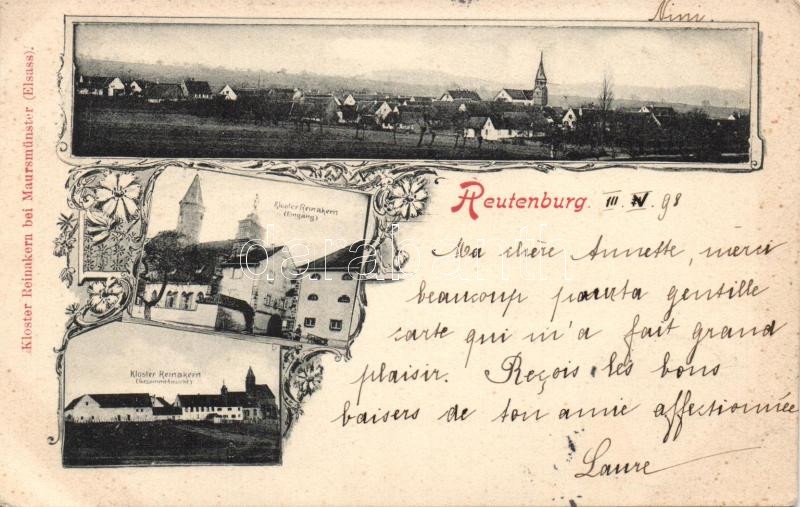 Nini.
Kloster Reinakern bei Maursmünster (Elsass).
Kloster Reinakern
(Eingang)
Kloster Reinakern
(Gesammtansicht)
Reutenburg. III. IV. 98
Ma chère Annette, merci
beaucoup pour ta gentille
carte qui m'a fait grand
plaisir. Reçois les bons
baisers de ton amie affectionnée
Laure
darabanth